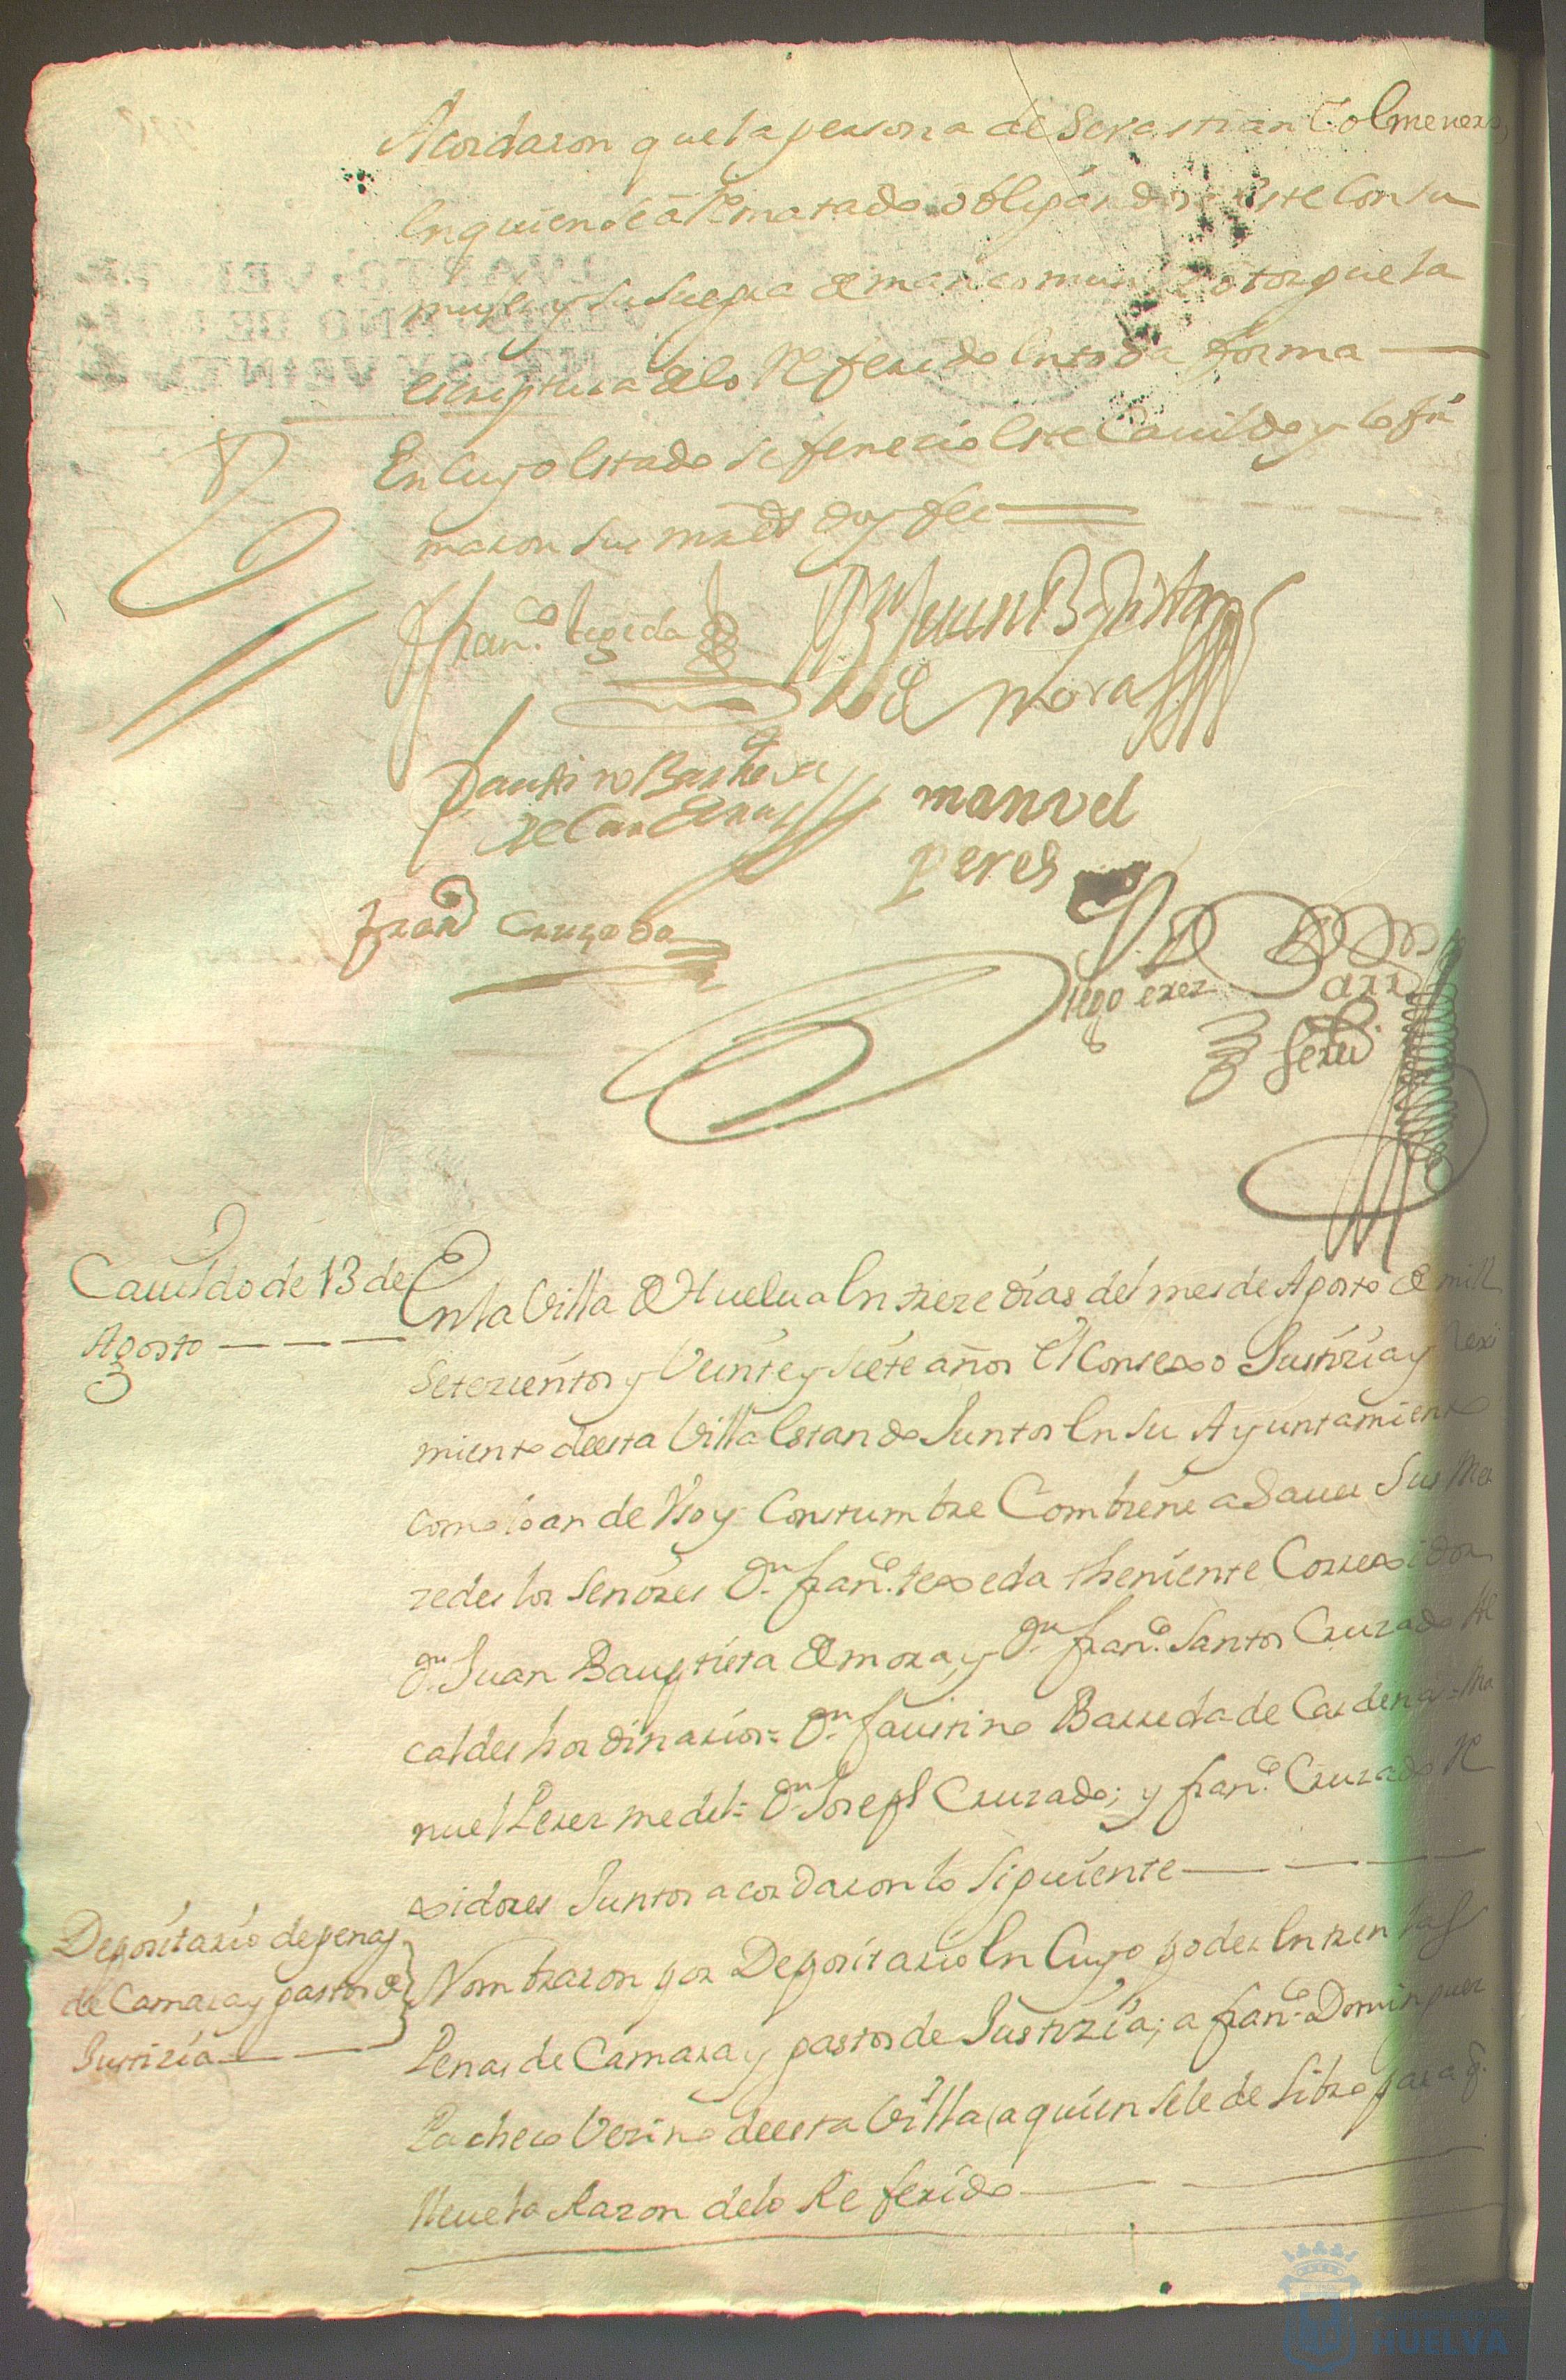 Acordaron que la persona de Sevastian Colmenero,
en quien se a Rematado obligandose este Con su
muger y su suegra de mancomun otorgue la
escriptura de lo Referido en toda forma
En Cuyo estado se fenecio este Cauildo y lo fir
maron sus mrds doy fee
Franco. tegeda
Dn Juan Baptista
de Mora
Faustino Barreda
de Cardenas
manuel
peres
Franco Cruzado
Diego Perez
Cauildo de 13 de
Agosto
En la Villa de Huelua en treze dias del mes de Agosto de mill
Setezientos y Veinte y siete años el Consexo Justizia y Rexi
miento deesta Villa estando Juntos en su Ayuntamiento
como lo an de Vso y Constumbre Combiene a Sauer Sus Mer
zedes los Señores Dn. franco. texeda theniente Correxidor
Dn. Juan Bauptista de mora, y Dn. franco. Santos Cruzado Al
caldes hordinarios = Dn. faustino Barreda de Cardenas = Ma
nuel Perez medel = Dn. Joseph Cruzado; y franco. Cruzado Re
xidores Juntos acordaron lo Siguiente
Depositario de penas
de Camara y gastos de
Justizia
Nombraron por Depositario en Cuyo poder entren las
Penas de Camara y gastos de Justizia; a franco. Dominguez
Pacheco Vezino deesta Villa, a quien se le de Libro para q.
lleue la Razon de lo Referido
HUELVA